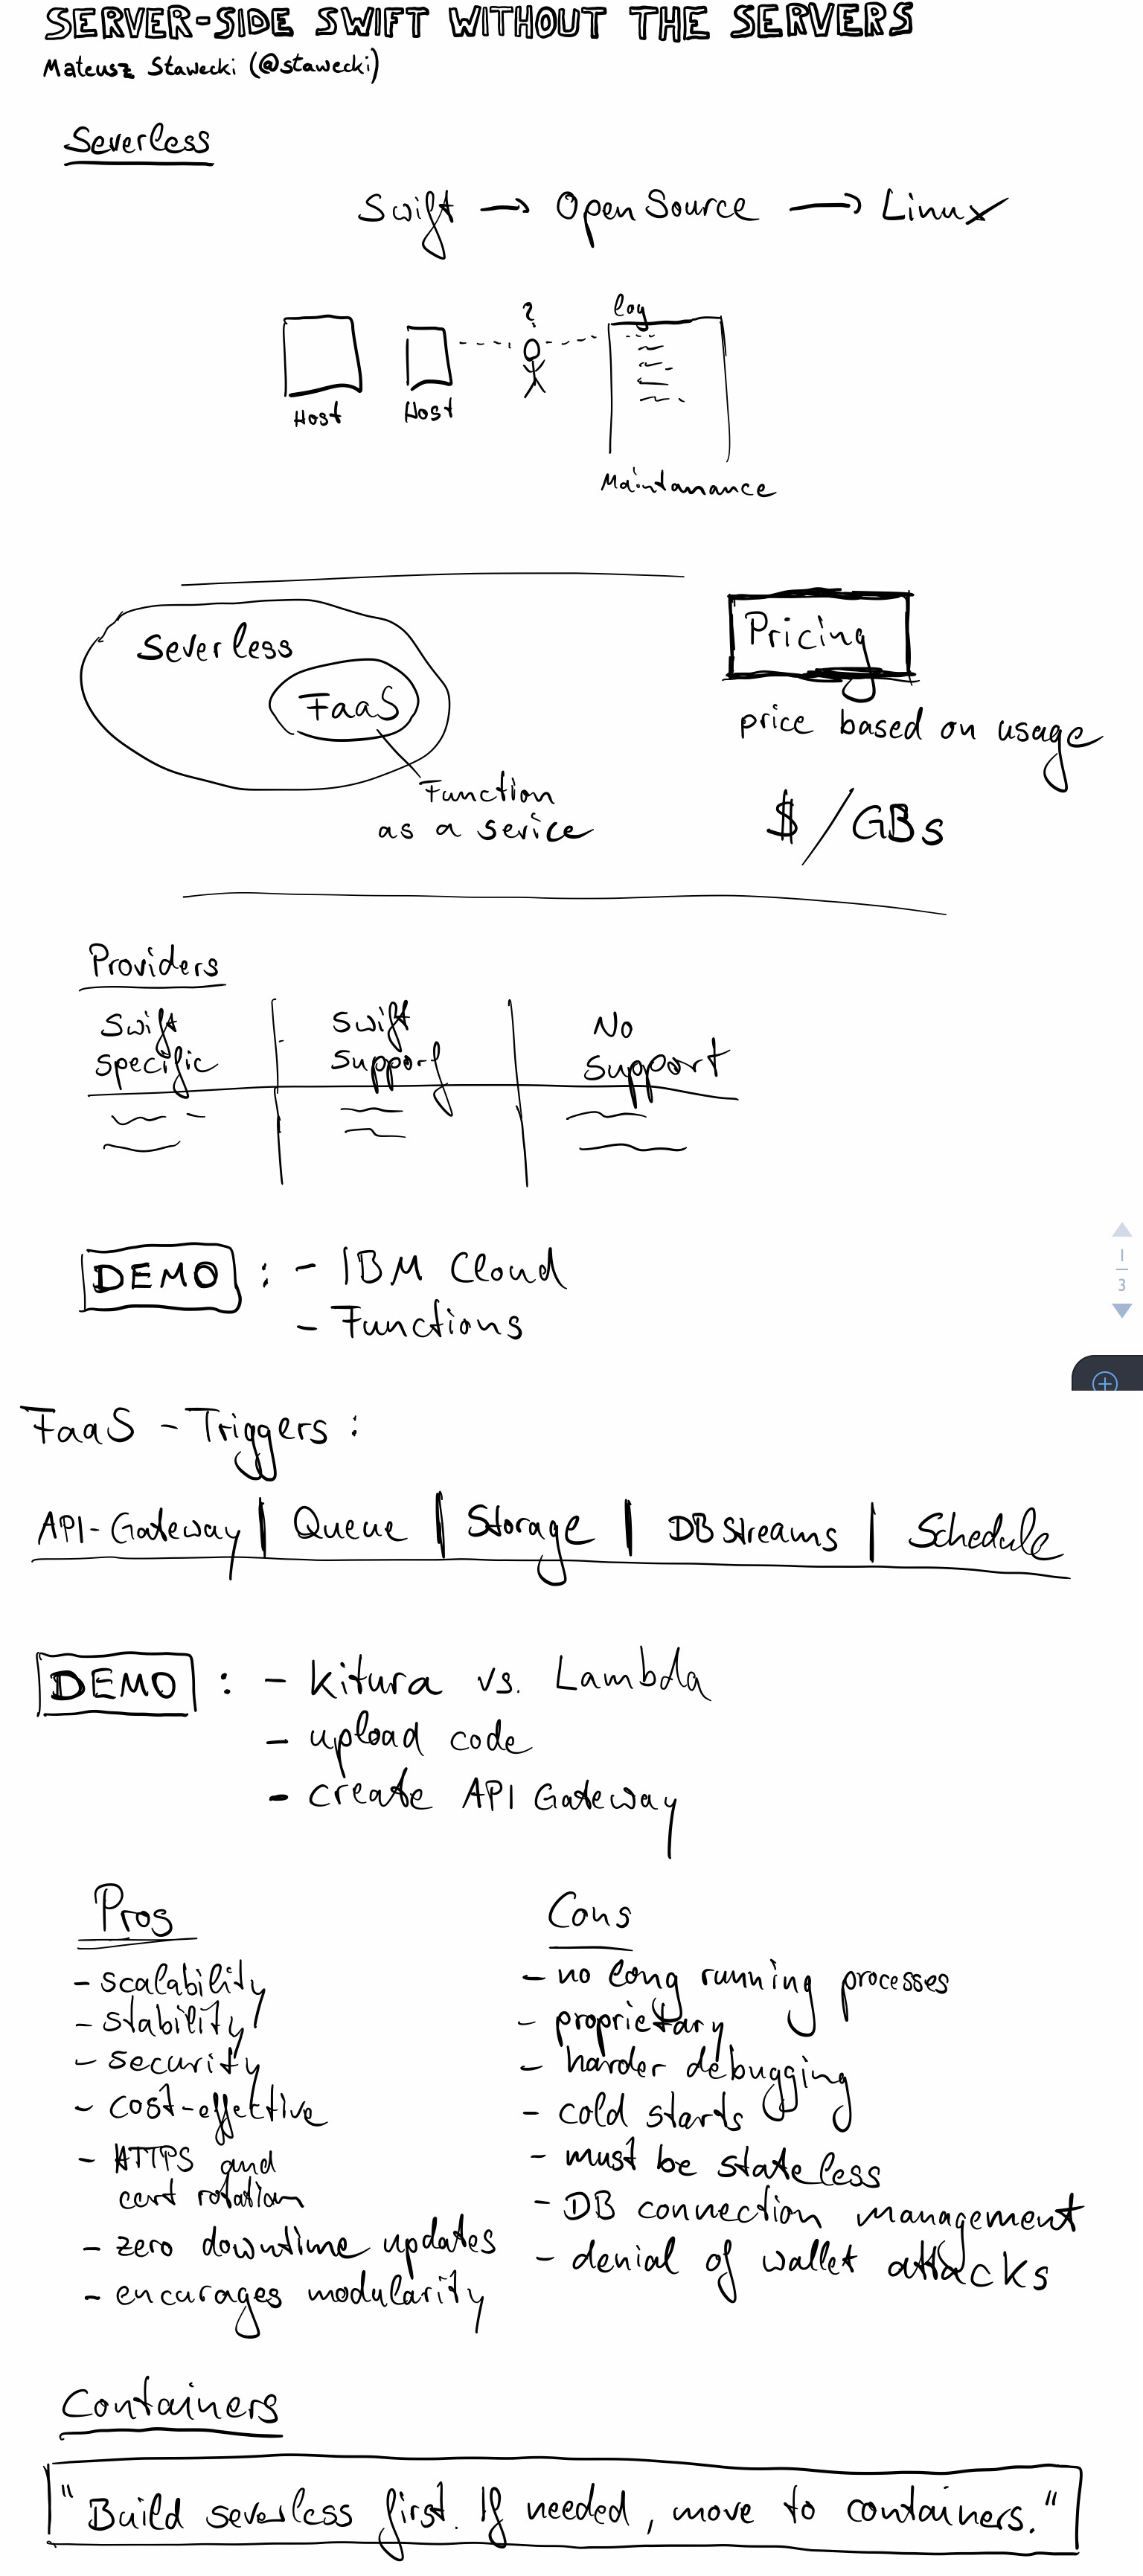 SERVER-SIDE SWIFT WITHOUT THE SERVERS
Mateusz Stawecki (@stawecki)
Severless
Swift → Open Source → Linux
?
log
Host
Host
Maintanance
Severless
FaaS
Function
as a sevice
Pricing
price based on usage
$/GBs
Providers
Swift
specific
Swift
Support
No
Support
DEMO : - IBM Cloud
- Functions
1
3
FaaS - Triggers :
API-Gateway | Queue | Storage | DB Streams | Schedule
DEMO : - Kitura vs. Lambda
- upload code
- create API Gateway
Pros
- scalability
- stability
- security
- cost-effective
- HTTPS and
cert rotation
- zero downtime updates
- encurages modularity
Cons
- no long running processes
- proprietary
- harder debugging
- cold starts
- must be stateless
- DB connection management
- denial of wallet attacks
Containers
"Build severless first. If needed, move to containers."